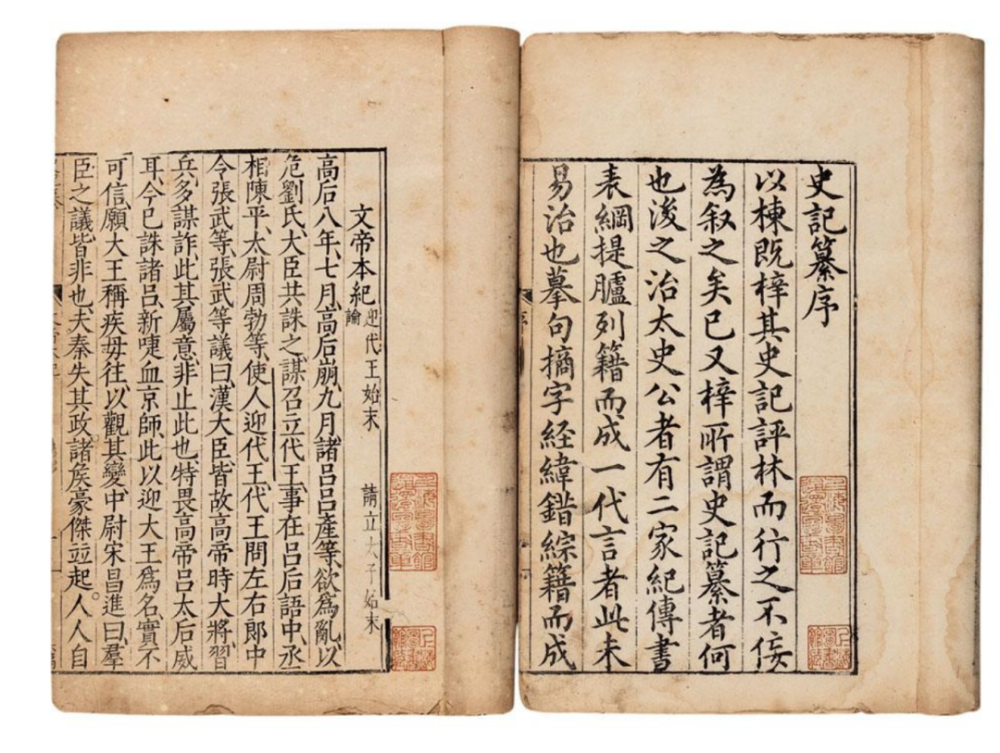 史記纂序
以棟既梓其史記評林而行之不佞
為叙之矣已又梓所謂史記纂者何
也浚之治太史公者有二家紀傳書
表綱提臚列籍而成一代言者此未
易治也摹句摘字経緯錯綜籍而成
序
文帝本紀
迎代王始末
請立太子始末
論
高后八年、七月、高后崩、九月諸呂呂產等、欲爲亂、以
危劉氏、大臣共誅之、謀召立代王、事在呂后語中、丞
相陳平、太尉周勃等、使人迎代王、代王問左右郎中
令張武等、張武等議曰、漢大臣皆故高帝時大將、習
兵、多謀詐、此其屬意、非止此也、特畏高帝呂太后威
耳、今已誅諸呂、新啑血京師、此以迎大王爲名、實不
可信、願大王稱疾毋往、以觀其變、中尉宋昌進曰、羣
臣之議皆非也、夫秦失其政、諸矦豪傑竝起。人人自